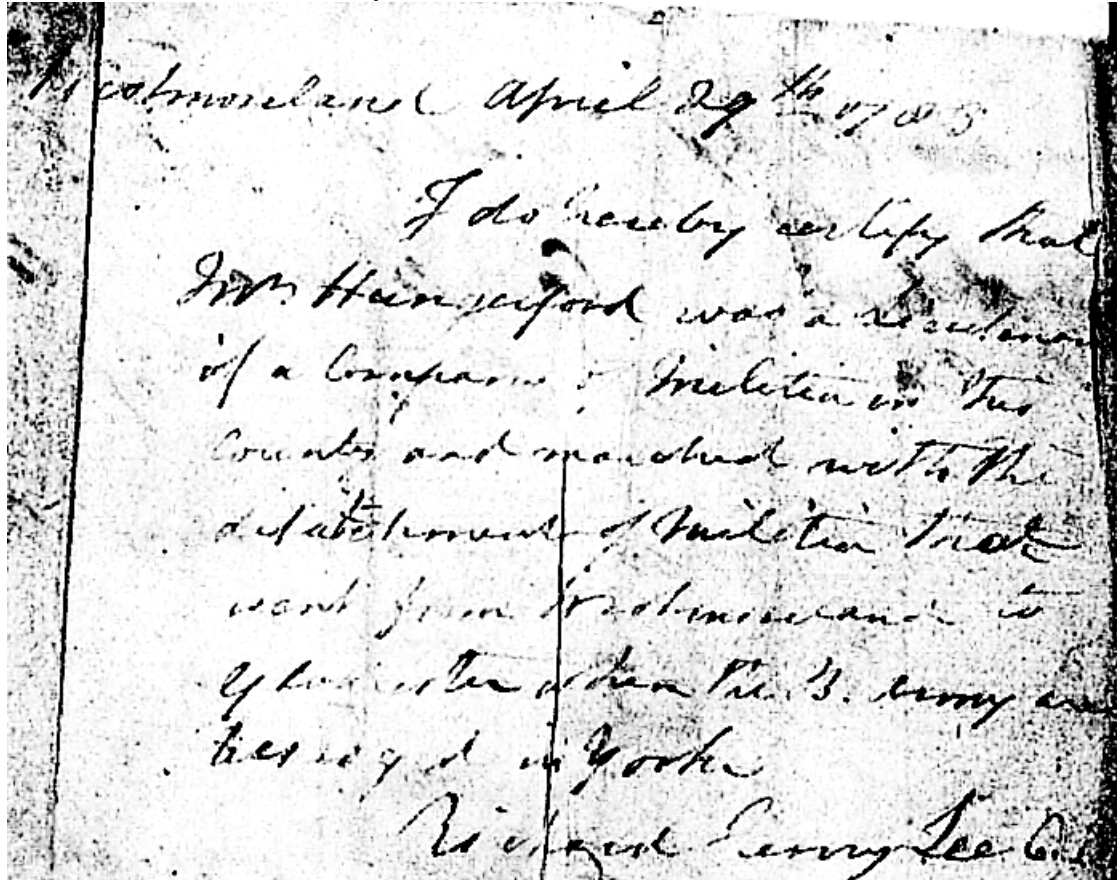 Westmoreland April 29th 1783
I do hereby certify that
Jno. Hungerford was a Lieutenant
of a Company of Militia in this
County and marched with the
detatchment of Militia that
went from Westmoreland to
Gloucester when the B. army was
besieged in York
Richard Henry Lee